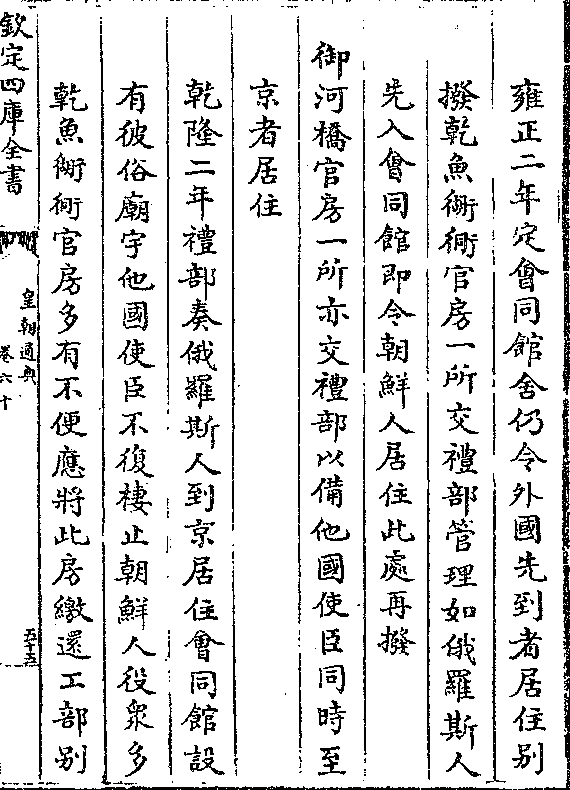 雍正二年定會同館舍仍令外國先到者居住别
撥乾魚衚衕官房一所交禮部管理如俄羅斯人
先入會同館即令朝鮮人居住此處再撥
御河橋官房一所亦交禮部以備他國使臣同時至
京者居住
乾隆二年禮部奏俄羅斯人到京居住會同館設
有彼俗廟宇他國使臣不復棲止朝鮮人役衆多
乾魚衚衕官房多有不便應將此房繳還工部别
欽定四庫全書
皇朝通典
卷六十
五十五